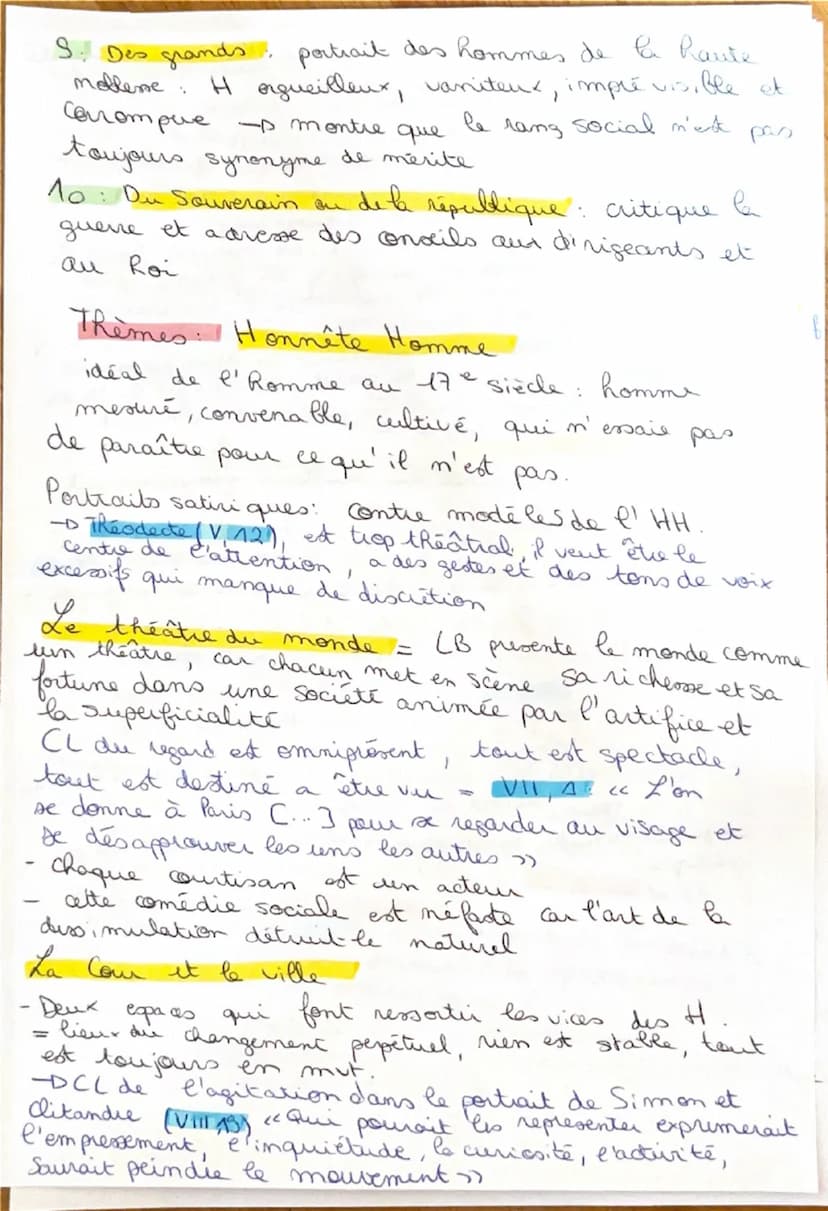 9: Des grands : portrait des hommes de la haute
noblesse : H orgueilleux, vaniteux, imprévisible et
corrompue → montre que le rang social n'est pas
toujours synonyme de mérite
10 : Du Souverain ou de la république : critique la
guerre et adresse des conseils aux dirigeants et
au Roi
Thèmes : Honnête Homme
idéal de l'homme au 17e siècle : homme
mesuré, convenable, cultivé, qui n'essaie pas
de paraître pour ce qu'il n'est pas.
Portraits satiriques : contre modèles de l'HH.
→ Théodecte (V, 12), est trop théâtral, il veut être le
centre de l'attention, a des gestes et des tons de voix
excessifs qui manque de discrétion
Le théâtre du monde = LB présente le monde comme
un théâtre, car chacun met en scène sa richesse et sa
fortune dans une société animée par l'artifice et
la superficialité
CL du regard est omniprésent, tout est spectacle,
tout est destiné a être vu = VII, 1 : « L'on
se donne à Paris [...] pour se regarder au visage et
se désapprouver les uns les autres »
- chaque courtisan est un acteur
- cette comédie sociale est néfaste car l'art de la
dissimulation détruit le naturel
La Cour et la ville
- Deux espaces qui font ressortir les vices des H.
= lieux du changement perpétuel, rien est stable, tout
est toujours en mvt.
→ CL de l'agitation dans le portrait de Simon et
Clitandre (VIII 19) « Qui pourait les representer exprimerait
l'empressement, l'inquiétude, la curiosité, l'activité,
Saurait peindre le mouvement »